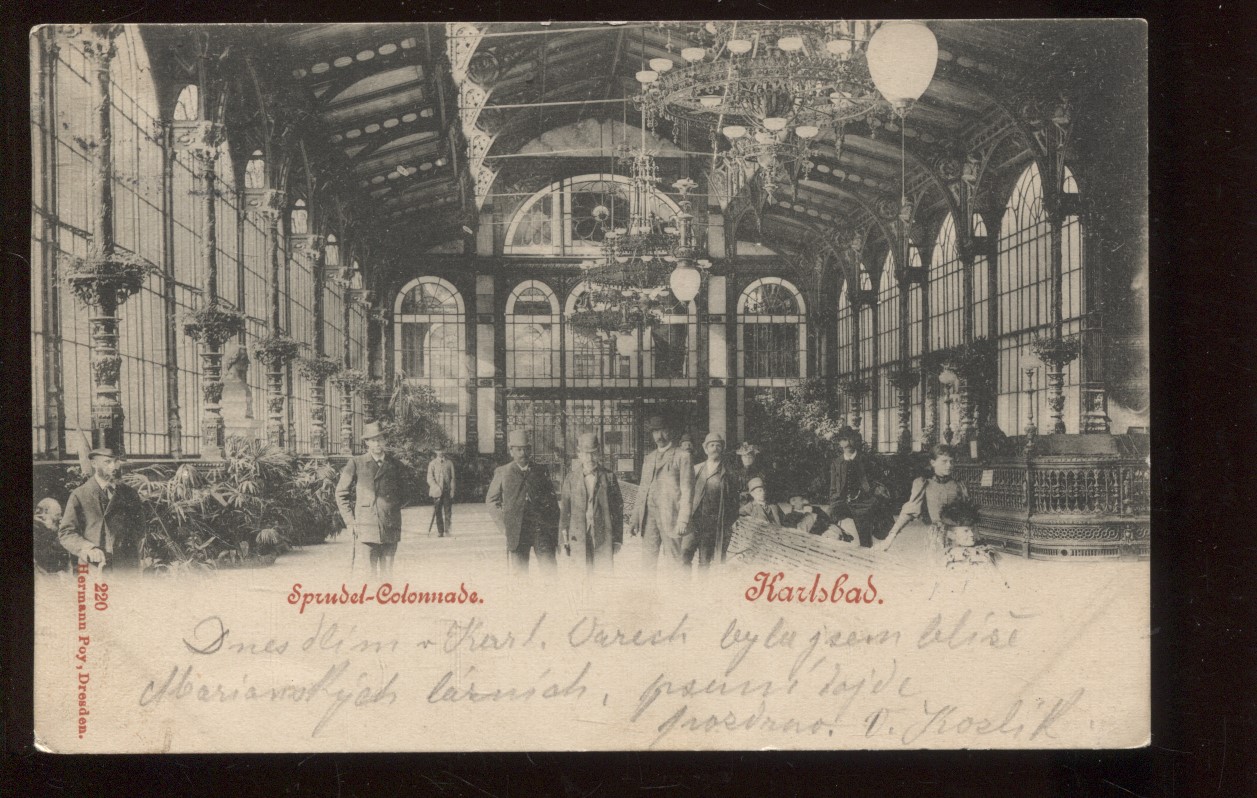 Sprudel-Colonnade.
Karlsbad.
220
Hermann Poy, Dresden.
Dnes dlím v Karl. Varech byla jsem blíže
Marianských lázních, psaní dojde
pozdrav. Koslik